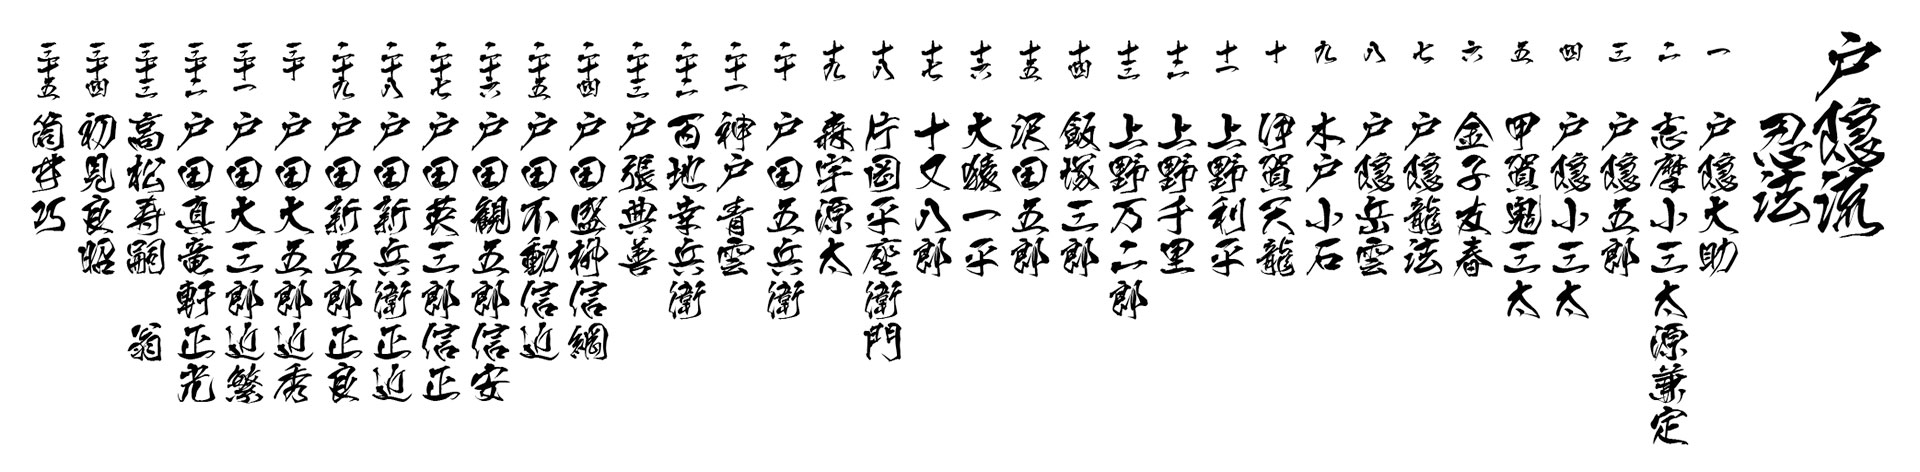 戸隠流
忍法
一 戸隠大助
二 志摩小三太源兼定
三 戸隠五郎
四 戸隠小三太
五 甲賀鬼三太
六 金子友春
七 戸隠龍法
八 戸隠岳雲
九 木戸小石
十 伊賀天龍
十一 上野利平
十二 上野千里
十三 上野万二郎
十四 飯塚三郎
十五 沢田五郎
十六 大猿一平
十七 十又八郎
十八 片岡平座衛門
十九 森宇源太
二十 戸田五兵衛
二十一 神戸青雲
二十二 百地幸兵衛
二十三 戸張典善
二十四 戸田盛柳信綱
二十五 戸田不動信近
二十六 戸田観五郎信安
二十七 戸田英三郎信正
二十八 戸田新兵衛正近
二十九 戸田新五郎正良
三十 戸田大五郎近秀
三十一 戸田大三郎近繁
三十二 戸田真竜軒正光
三十三 高松寿嗣 翁
三十四 初見良昭
三十五 筒井巧